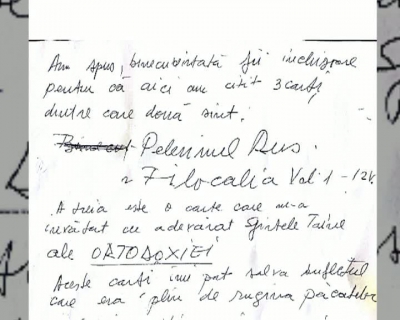 Am spus, binecuvîntată fii închisoare
pentru că aici am citit 3 cărți
dintre care două sînt:
Pelerinul Rus.
Filocalia Vol 1-12.
A treia este o carte care m-a
învățat cu adevărat Sfintele Taine
ale ORTODOXIEI
Aceste cărți îmi pot salva sufletul
care era plin de rugina păcatelor